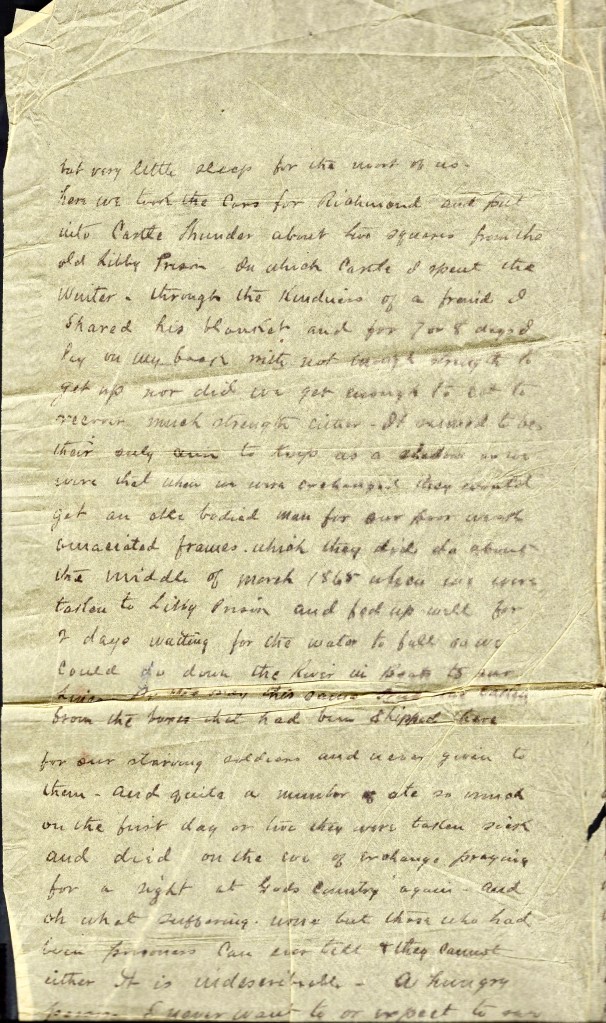 but very little sleep for the most of us.
here we took the cars for Richmond and put
into Castle Thunder about two squares from the
old Libby Prison In which Castle I spent the
Winter - through the Kindness of a freind I
Shared his blanket and for 7 or 8 days I
lay on my back with not enough strength to
get up nor did we get enough to eat to
recover much strength either - It seemed to be
their only aim to keep us a shadow as we
were that when we were exchanged they would
get an able bodied man for our poor weak
emaciated frames. which they did do about
the middle of march 1865 when we were
taken to Libby Prison and fed up well for
2 days waiting for the water to fall so we
could go down the River in Boats to our
the way this
from the boxes that had been shipped there
for our starving soldiers and never given to
them - and quite a number ate so much
on the first day or two they were taken sick
and died on the eve of exchange praying
for a sight at Gods Country again - and
oh what suffering. none but those who had
been prisoners can ever tell & they cannot
either It is indescribable - A hungry
person I never want to or expect to see